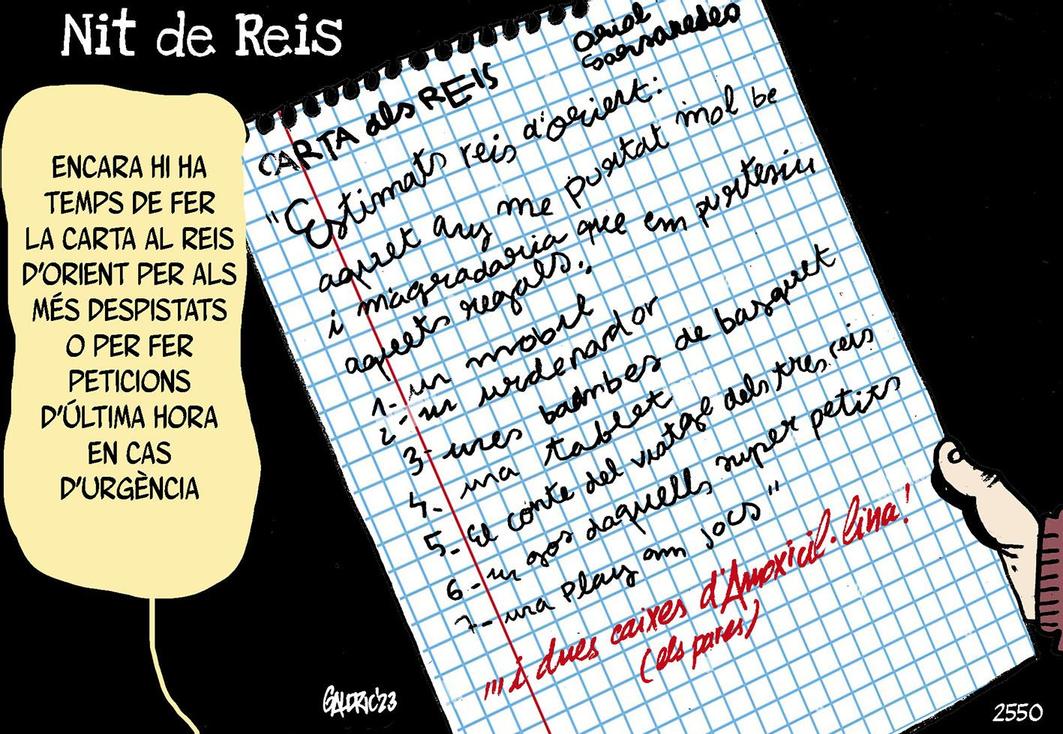 Nit de Reis
ENCARA HI HA
TEMPS DE FER
LA CARTA AL REIS
D'ORIENT PER ALS
MÉS DESPISTATS
O PER FER
PETICIONS
D'ÚLTIMA HORA
EN CAS
D'URGÈNCIA
Oriol
Sarsaredes
CARTA als REIS
"Estimats reis d'orient:
aquet any me purtat mol be
i m'agradaria que em purtesiu
aquets regals.
1- un mobil
2- un urdenador
3- unes bambes de basquet
4- una tablet
5- El conte del viatge dels tres reis
6- un gos daquells super petits
7- una play am jocs"
"'i dues caixes d'Amoxicil·lina!
(els pares)
GALDRIC'23
2550